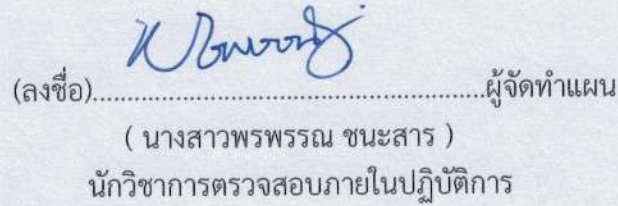 (ลงชื่อ)......................................................ผู้จัดทำแผน
( นางสาวพรพรรณ ชนะสาร )
นักวิชาการตรวจสอบภายในปฏิบัติการ